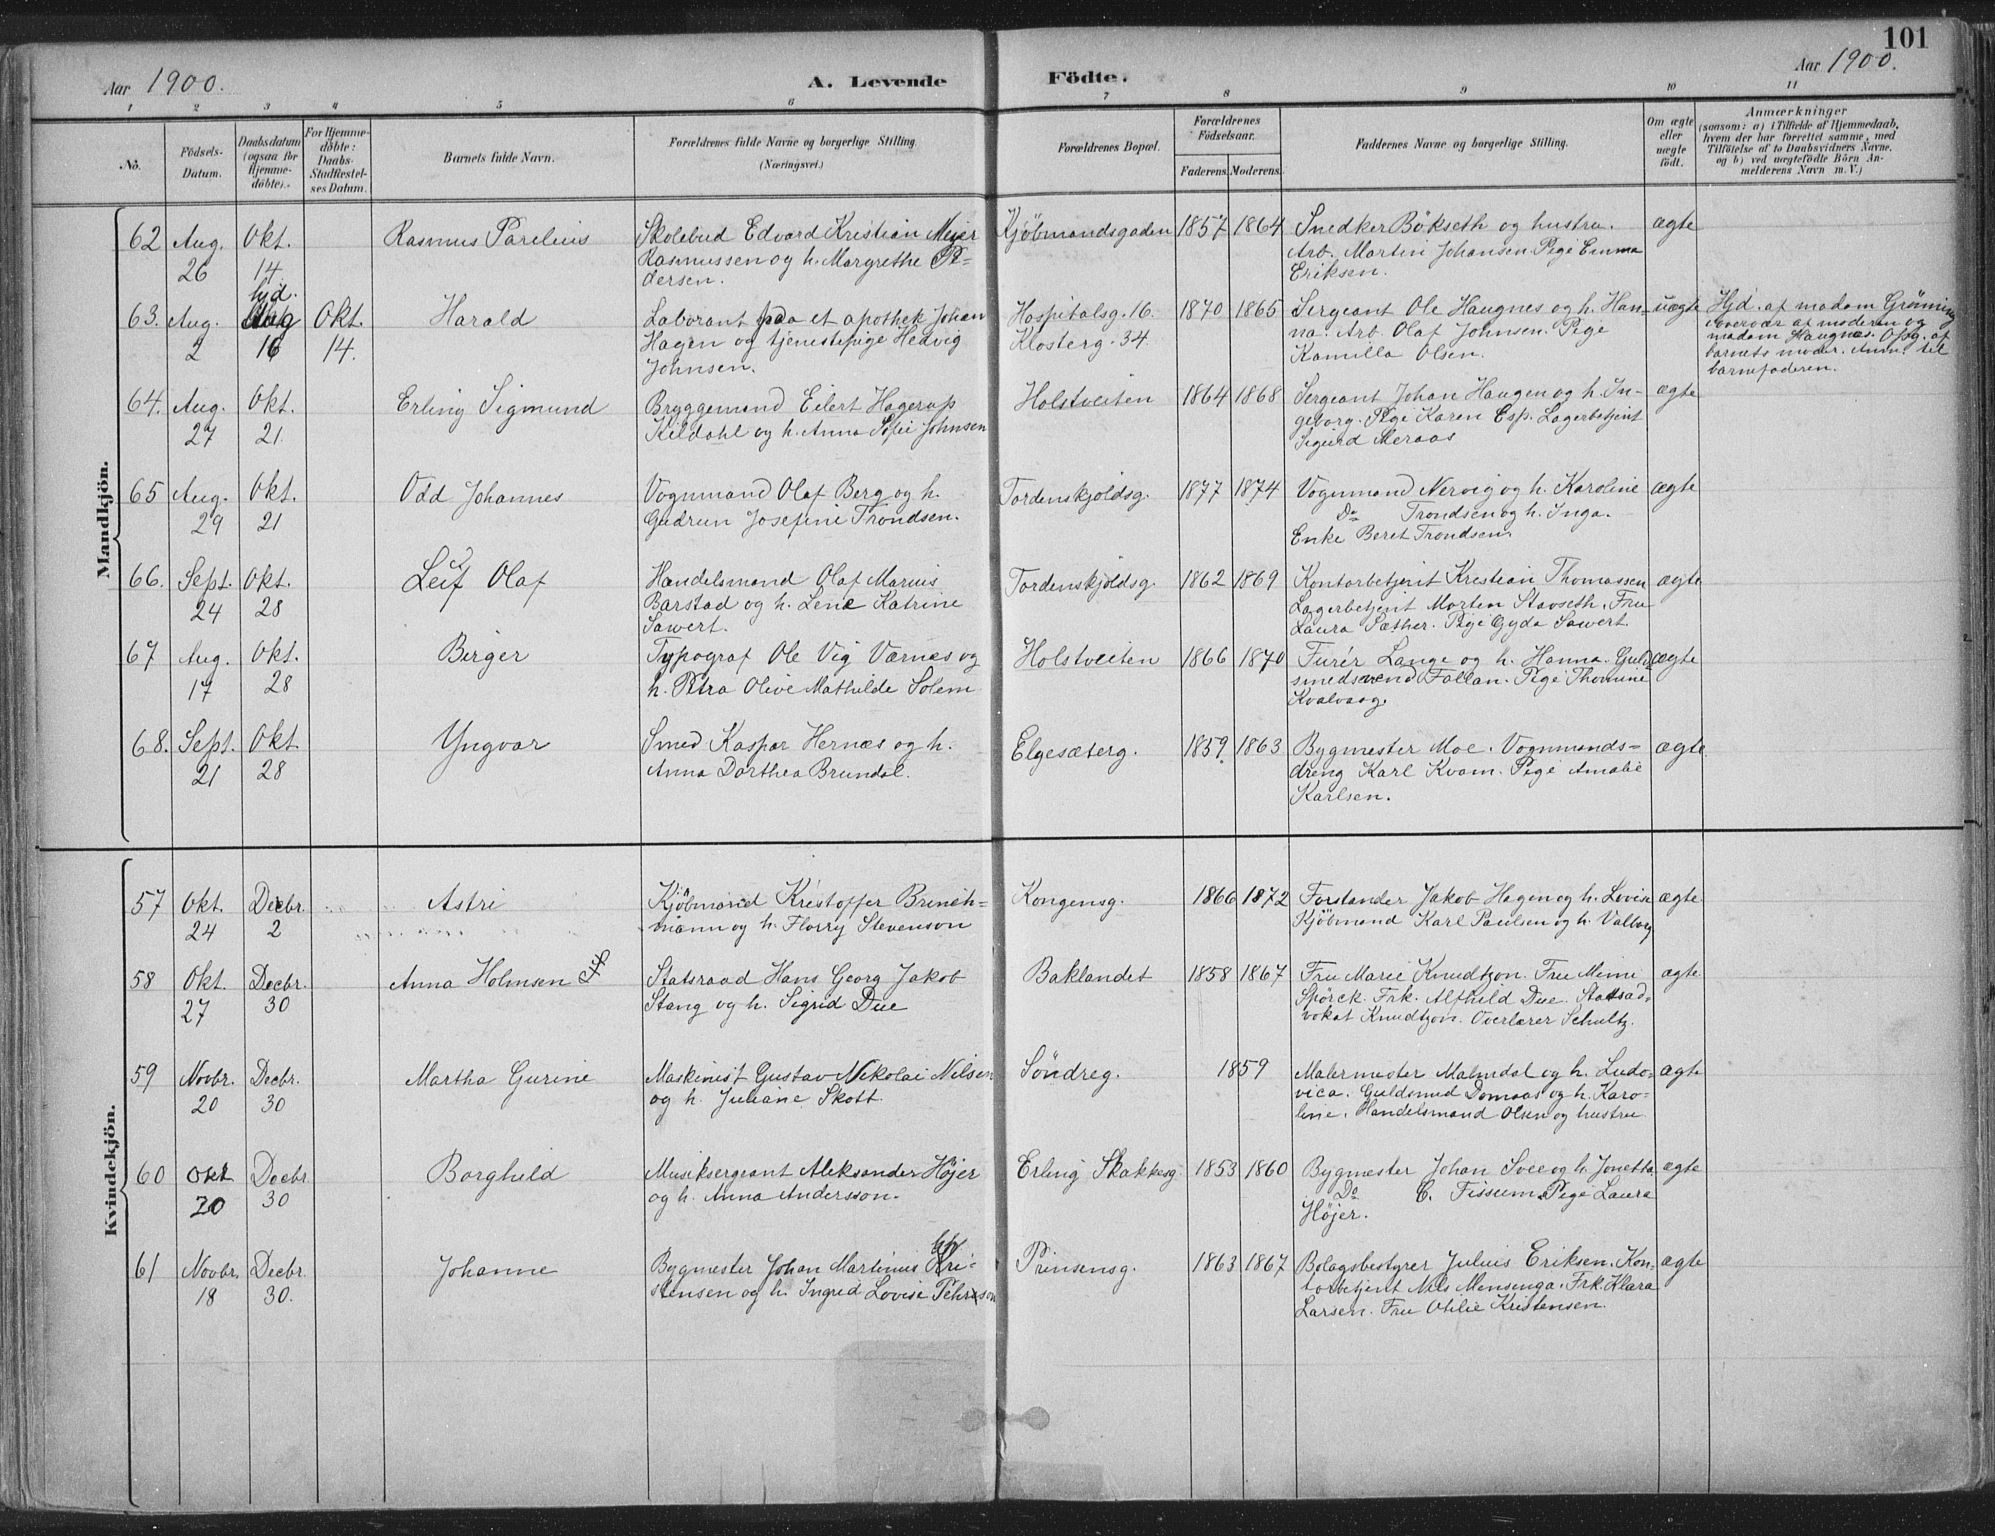 101
Aar 1900. A. Levende Födte. Aar 1900.
1 2 3 4 5 6 7 8 9 10 11
No. Födsels-Datum. Daabsdatum (ogsaa for Hjemme-döbte). For Hjemme-döbte: Daabs-Stadfæstel-ses Datum. Barnets fulde Navn. Forældrenes fulde Navne og borgerlige Stilling (Næringsvei.) Forældrenes Bopæl. Forældrenes Födselsaar. Faderens. Moderens. Faddernes Navne og borgerlige Stilling. Om ægte eller uægte födt. Anmærkninger (saasom: a) i Tilfælde af Hjemmedaab, hvem der har forrettet samme, med Tilföielse af to Daabsvidners Navne, og b) ved uægtefödte Börn An-melderens Navn m. V.)
Mandkjön.
62 Aug. Okt. Rasmus Parelius Skolebud Edvard Kristian Mejer Kjöbmandsgaden 1857 1864 Snedker Bökseth og hustru. ægte
26 14 Rasmussen og h. Margrethe Pe- Arb. Martin Johansen. Pige Emma
dersen. Eriksen.
hjd.
63. Aug. Aug Okt. Harald Laborant paa et apothek Johan Hospitalsg. 16. 1870 1865 Sergeant Ole Haugnes og h. Han- uægte Hjd. af madam Grönning
2 16 14. Hagen og tjenestepige Hedvig Klosterg. 34. na. Arb. Olaf Johnsen. Pige i overvær af moderen og
Johnsen. Kamilla Olsen. madam Haugnes. Opg. af
barnets moder. Anm. til
barnefaderen.
64. Aug. Okt. Erling Sigmund Bryggemand Eilert Hagerup Holstveiten 1864 1868 Sergeant Johan Haugen og h. In- ægte
27 21. Kildahl og h. Anna Sofie Johnsen geborg. Pige Karen Esp. Lagerbetjent
Sigurd Meraas
65 Aug. Okt. Odd Johannes Vognmand Olaf Berg og h. Tordenskjoldsg. 1877 1874 Vognmand Nervig og h. Karoline ægte
29 21 Gudrun Josefine Trondsen. Do Trondsen og h. Inga.
Enke Beret Trondsen.
66. Sept. Okt. Leif Olaf Handelsmand Olaf Marius Tordenskjoldsg. 1862 1869 Kontorbetjent Kristian Thomassen ægte
24 28 Barstad og h. Lene Katrine Lagerbetjent Morten Stavseth. Fru
Sawert. Laura Sæther. Pige Gyda Sawert.
67 Aug. Okt. Birger Typograf Ole Vig Værnes og Holstveiten 1866 1870 Furér Lange og h. Hanna. Guld- ægte
17 28 h. Petra Olive Mathilde Solem smedsvend Fallan. Pige Thomine
Kvalvaag.
68. Sept. Okt Yngvar Smed Kaspar Hernæs og h. Elgesæterg. 1859. 1863 Bygmester Moe. Vognmands- ægte
21 28 Anna Dorthea Brundal. dreng Karl Kvam. Pige Amalie
Karlsen.
Kvindekjön.
57 Okt. Decbr. Astri Kjöbmand Kristoffer Brinch- Kongensg. 1866 1872 Forstander Jakob Hagen og h. Lovise ægte
24 2 mann og h. Florry Stevenson Kjöbmand Karl Paulsen og h. Valborg
58 Okt. Decbr. Anna Holmsen Statsraad Hans Georg Jakob Baklandet 1858 1867 Fru Marie Knudtzon. Fru Mimi ægte
27 30 Stang og h. Sigrid Due Spörck. Frk. Alfhild Due. Statsad-
vokat Knudtzon. Overlærer Schultz.
59 Novbr. Decbr. Martha Gurine Maskinist Gustav Nikolai Nilsen Söndreg. 1859 Malermester Malmdal og h. Ludo- ægte
20 30 og h. Juliane Skott. vica. Guldsmed Domaas og h. Karo-
line. Handelsmand Olsen og hustru
60 Okt Decbr Borghild Musiksergeant Aleksander Höjer Erling Skakkesg. 1853 1860 Bygmester Johan Svee og h. Jonetta ægte
20 30 og h. Anna Andersson. Do C. Fissum. Pige Laura
Höjer.
61 Novbr. Decbr. Johanne Bygmester Johan Martinius Kri- Prinsensg. 1863 1867 Bolagsbestyrer Julius Eriksen. Kon- ægte
18 30. stensen og h. Ingrid Lovise Pehrsson torbetjent Nils Mensinga. Frk. Klara
Larsen. Fru Otilie Kristensen.